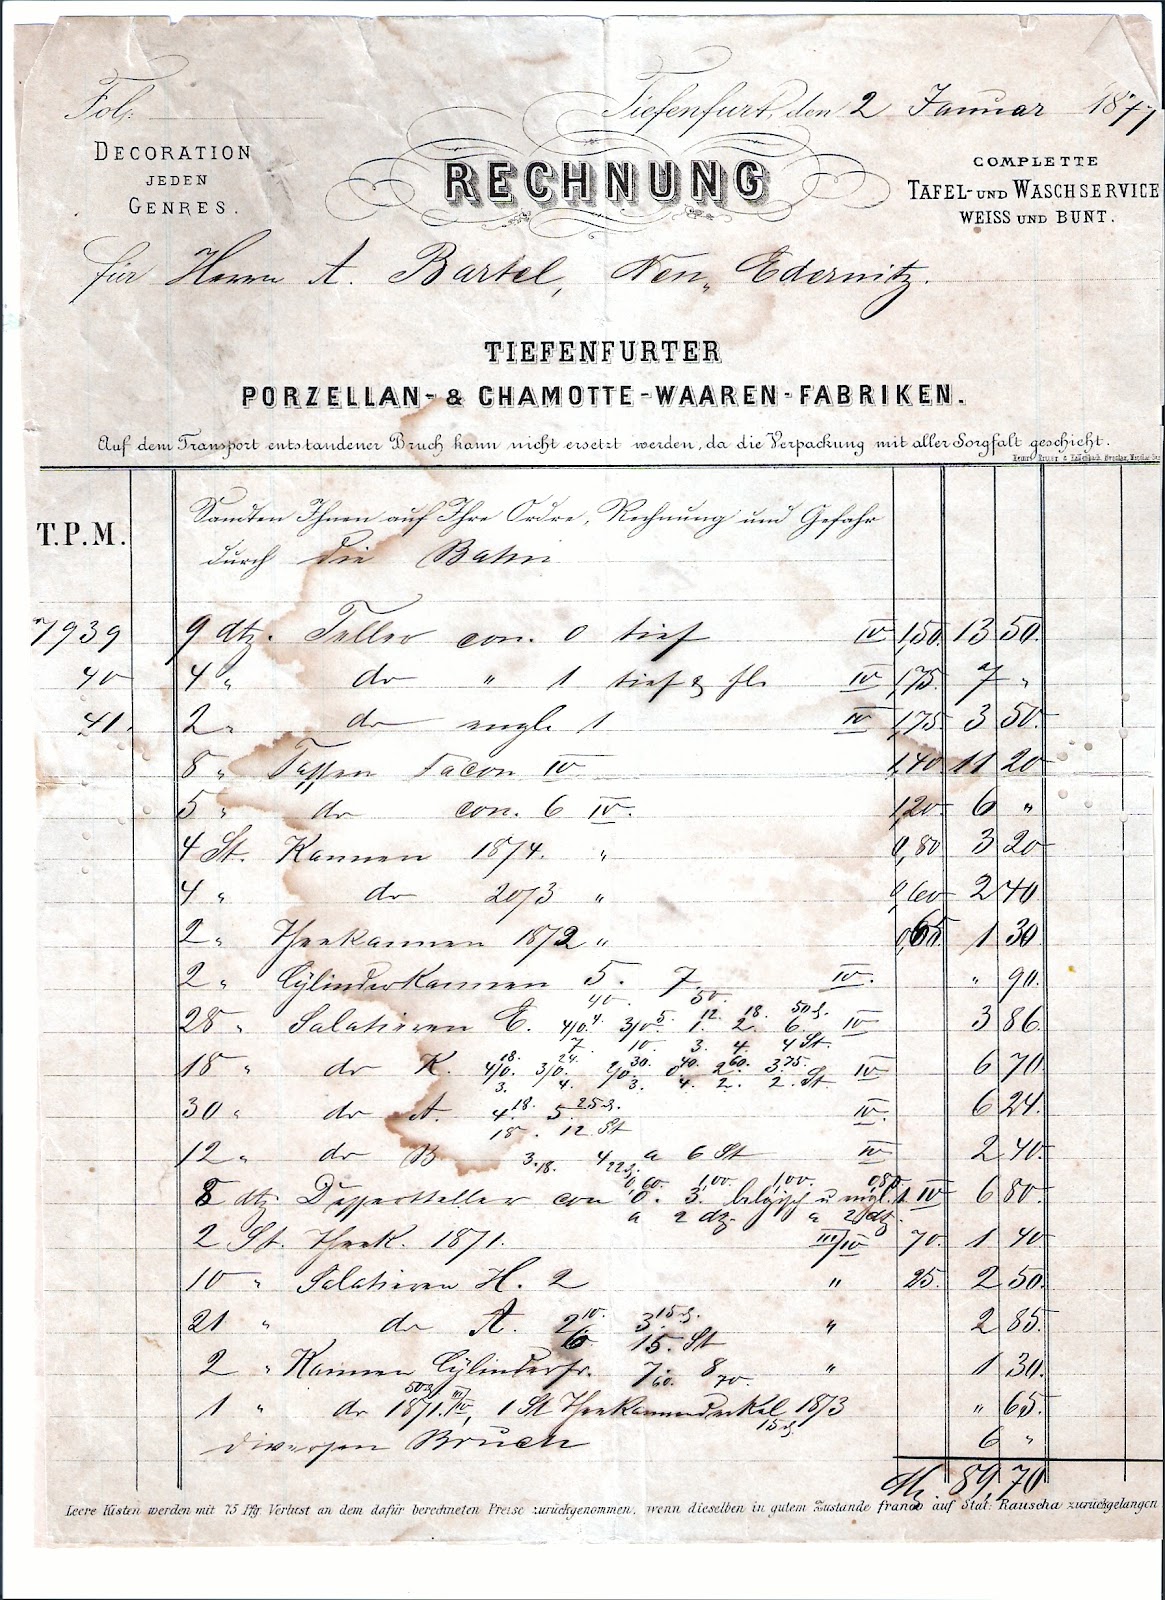 Fol:
Tiefenfurt, den 2 Januar 1877
DECORATION
JEDEN
GENRES.
RECHNUNG
COMPLETTE
TAFEL- UND WASCHSERVICE
WEISS UND BUNT.
für Herrn A. Bartel, Neu„ Edernitz.
TIEFENFURTER
PORZELLAN- & CHAMOTTE-WAAREN-FABRIKEN.
Auf dem Transport entstandener Bruch kann nicht ersetzt werden, da die Verpackung mit aller Sorgfalt geschieht.
T.P.M.
Sandten Ihnen auf Ihre Ordre, Rechnung und Gefahr
durch die Bahn
7939 9 dtz. Teller con. 0 tief IV 1,50. 13 50.
40 4 „ do „ 1 tief & fl. IV 1,75. 7 „
41. 2 „ do engl. 1 IV 1,75 3 50.
8 „ Tassen Facon IV 1,40 11 20
5 „ do con. 6 IV. 1,20 6 „
4 St. Kannen 1874. „ 0,80 3 20
4 „ do 2073 „ 0,60 2 40.
2 „ Theekannen 1872 „ 0,65. 1 30
2 „ Cylinderkannen 5. 7. IV. „ 90.
40 50.
28 „ Salatieren E. 4/0.4 3/0.5 1.12 2.18 6.50 IV 3 86.
7 10. 3. 4. 4 St.
18 „ do K. 4/0.18 3/0.24 2/0.30 0.40 2.60 3.75 IV 6 70
3. 4. 3. 4. 2. 2. St
30 „ do A 4 18. 5 25 IV. 6 24.
18. 12 St
12 „ do B 3. 18. 4 22 a 6 St IV 2 40.
0,60. 1,00. 1,00. 0,80
8 dtz Dessertteller con 0. 3. belgisch u engl. 1 IV 6 80.
a 2 dz. a 2 dtz.
2 St. Theek. 1871. III/IV 70. 1 40
10 „ Salatieren H. 2 „ 25. 2 50.
21 „ do A. 2 10. 3 15 „ 2 85.
6 15. St
2 „ Kannen Cylinderfr. 7. 60. 8 70. „ 1 30.
1 „ do 1871. III/IV, 1 St Theekannendeckel 1873 „ 65.
diversen Bruch 6 „
M. 89,70
Leere Kisten werden mit 75 Pfg. Verlust an dem dafür berechneten Preise zurückgenommen, wenn dieselben in gutem Zustande franco auf Stat: Rauscha zurückgelangen